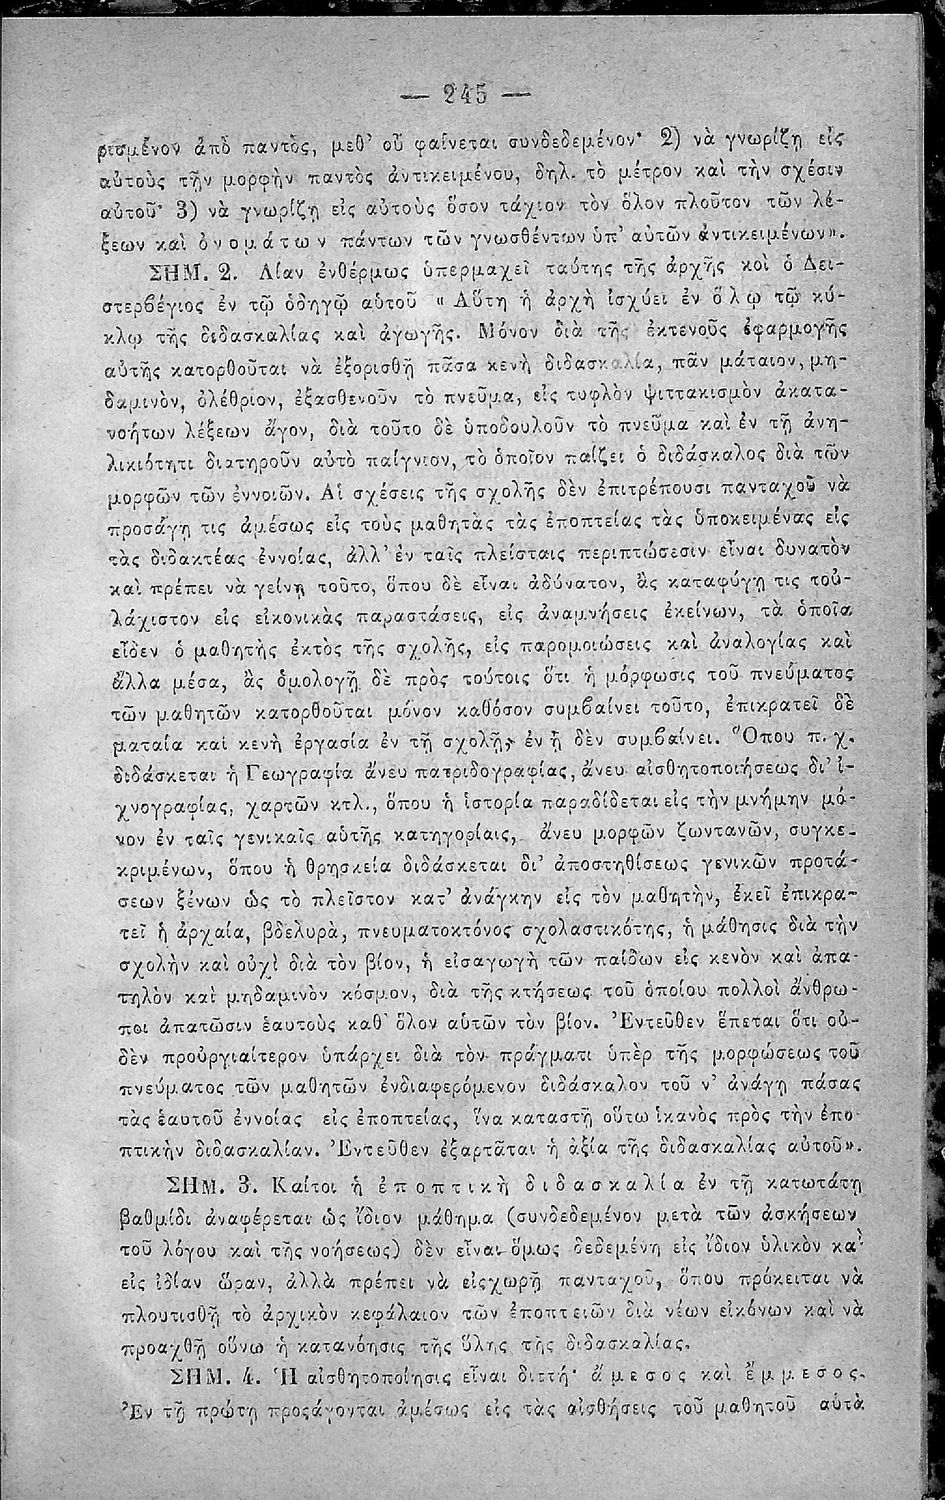 — 245 —
ρισμένον ἀπὸ παντὸς, μεθ’ οὗ φαίνεται συνδεδεμένον· 2) νὰ γνωρίζῃ εἰς
αὐτοὺς τὴν μορφὴν παντὸς ἀντικειμένου, δηλ. τὸ μέτρον καὶ τὴν σχέσιν
αὐτοῦ· 3) νὰ γνωρίζῃ εἰς αὐτοὺς ὅσον τάχιον τὸν ὅλον πλοῦτον τῶν λέ-
ξεων καὶ ὀνομάτων πάντων τῶν γνωσθέντων ὑπ’ αὐτῶν ἀντικειμένων».
ΣΗΜ. 2. Λίαν ἐνθέρμως ὑπερμαχεῖ ταύτης τῆς ἀρχῆς κοὶ ὁ Δει-
στερβέγιος ἐν τῷ ὁδηγῷ αὑτοῦ « Αὕτη ἡ ἀρχὴ ἰσχύει ἐν ὅλῳ τῷ κύ-
κλῳ τῆς διδασκαλίας καὶ ἀγωγῆς. Μόνον διὰ τῆς ἐκτενοῦς ἐφαρμογῆς
αὐτῆς κατορθοῦται νὰ ἐξορισθῇ πᾶσα κενὴ διδασκαλία, πᾶν μάταιον, μη-
δαμινὸν, ὀλέθριον, ἐξασθενοῦν τὸ πνεῦμα, εἰς τυφλὸν ψιττακισμὸν ἀκατα-
νοήτων λέξεων ἄγον, διὰ τοῦτο δὲ ὑποδουλοῦν τὸ πνεῦμα καὶ ἐν τῇ ἀνη-
λικιότητι διατηροῦν αὐτὸ παίγνιον, τὸ ὁποῖον παίζει ὁ διδάσκαλος διὰ τῶν
μορφῶν τῶν ἐννοιῶν. Αἱ σχέσεις τῆς σχολῆς δὲν ἐπιτρέπουσι πανταχοῦ νὰ
προσάγῃ τις ἀμέσως εἰς τοὺς μαθητὰς τὰς ἐποπτείας τὰς ὑποκειμένας εἰς
τὰς διδακτέας ἐννοίας, ἀλλ’ ἐν ταῖς πλείσταις περιπτώσεσιν εἶναι δυνατὸν
καὶ πρέπει νὰ γείνῃ τοῦτο, ὅπου δὲ εἶναι ἀδύνατον, ἂς καταφύγῃ τις τοὐ-
λάχιστον εἰς εἰκονικὰς παραστάσεις, εἰς ἀναμνήσεις ἐκείνων, τὰ ὁποῖα
εἶδεν ὁ μαθητὴς ἐκτὸς τῆς σχολῆς, εἰς παρομοιώσεις καὶ ἀναλογίας καὶ
ἄλλα μέσα, ἂς ὁμολογῇ δὲ πρὸς τούτοις ὅτι ἡ μόρφωσις τοῦ πνεύματος
τῶν μαθητῶν κατορθοῦται μόνον καθόσον συμβαίνει τοῦτο, ἐπικρατεῖ δὲ
ματαία καὶ κενὴ ἐργασία ἐν τῇ σχολῇ, ἐν ᾗ δὲν συμβαίνει. Ὅπου π. χ.
διδάσκεται ἡ Γεωγραφία ἄνευ πατριδογραφίας, ἄνευ αἰσθητοποιήσεως δι’ ἰ-
χνογραφίας, χαρτῶν κτλ., ὅπου ἡ ἱστορία παραδίδεται εἰς τὴν μνήμην μό-
νον ἐν ταῖς γενικαῖς αὑτῆς κατηγορίαις, ἄνευ μορφῶν ζωντανῶν, συγκε-
κριμένων, ὅπου ἡ θρησκεία διδάσκεται δι’ ἀποστηθίσεως γενικῶν προτά-
σεων ξένων ὡς τὸ πλεῖστον κατ’ ἀνάγκην εἰς τὸν μαθητὴν, ἐκεῖ ἐπικρα-
τεῖ ἡ ἀρχαία, βδελυρὰ, πνευματοκτόνος σχολαστικότης, ἡ μάθησις διὰ τὴν
σχολὴν καὶ οὐχὶ διὰ τὸν βίον, ἡ εἰσαγωγὴ τῶν παίδων εἰς κενὸν καὶ ἀπα-
τηλὸν καὶ μηδαμινὸν κόσμον, διὰ τῆς κτήσεως τοῦ ὁποίου πολλοὶ ἄνθρω-
ποι ἀπατῶσιν ἑαυτοὺς καθ’ ὅλον αὑτῶν τὸν βίον. Ἐντεῦθεν ἕπεται ὅτι οὐ-
δὲν προὐργιαίτερον ὑπάρχει διὰ τὸν πράγματι ὑπὲρ τῆς μορφώσεως τοῦ
πνεύματος τῶν μαθητῶν ἐνδιαφερόμενον διδάσκαλον τοῦ ν’ ἀνάγῃ πάσας
τὰς ἑαυτοῦ ἐννοίας εἰς ἐποπτείας, ἵνα καταστῇ οὕτω ἱκανὸς πρὸς τὴν ἐπο
πτικὴν διδασκαλίαν. Ἐντεῦθεν ἐξαρτᾶται ἡ ἀξία τῆς διδασκαλίας αὐτοῦ».
ΣΗΜ. 3. Καίτοι ἡ ἐποπτικὴ διδασκαλία ἐν τῇ κατωτάτῃ
βαθμίδι ἀναφέρεται ὡς ἴδιον μάθημα (συνδεδεμένον μετὰ τῶν ἀσκήσεων
τοῦ λόγου καὶ τῆς νοήσεως) δὲν εἶναι ὅμως δεδεμένη εἰς ἴδιον ὑλικὸν καὶ
εἰς ἰδίαν ὥραν, ἀλλὰ πρέπει νὰ εἰςχωρῇ πανταχοῦ, ὅπου πρόκειται νὰ
πλουτισθῇ τὸ ἀρχικὸν κεφάλαιον τῶν ἐποπτειῶν διὰ νέων εἰκόνων καὶ νὰ
προαχθῇ οὕνω ἡ κατανόησις τῆς ὕλης τῆς διδασκαλίας.
ΣΗΜ. 4. Ἡ αἰσθητοποίησις εἶναι διττή· ἄμεσος καὶ ἔμμεσος.
Ἐν τῇ πρώτῃ προςάγονται ἀμέσως εἰς τὰς αἰσθήσεις τοῦ μαθητοῦ αὐτὰ